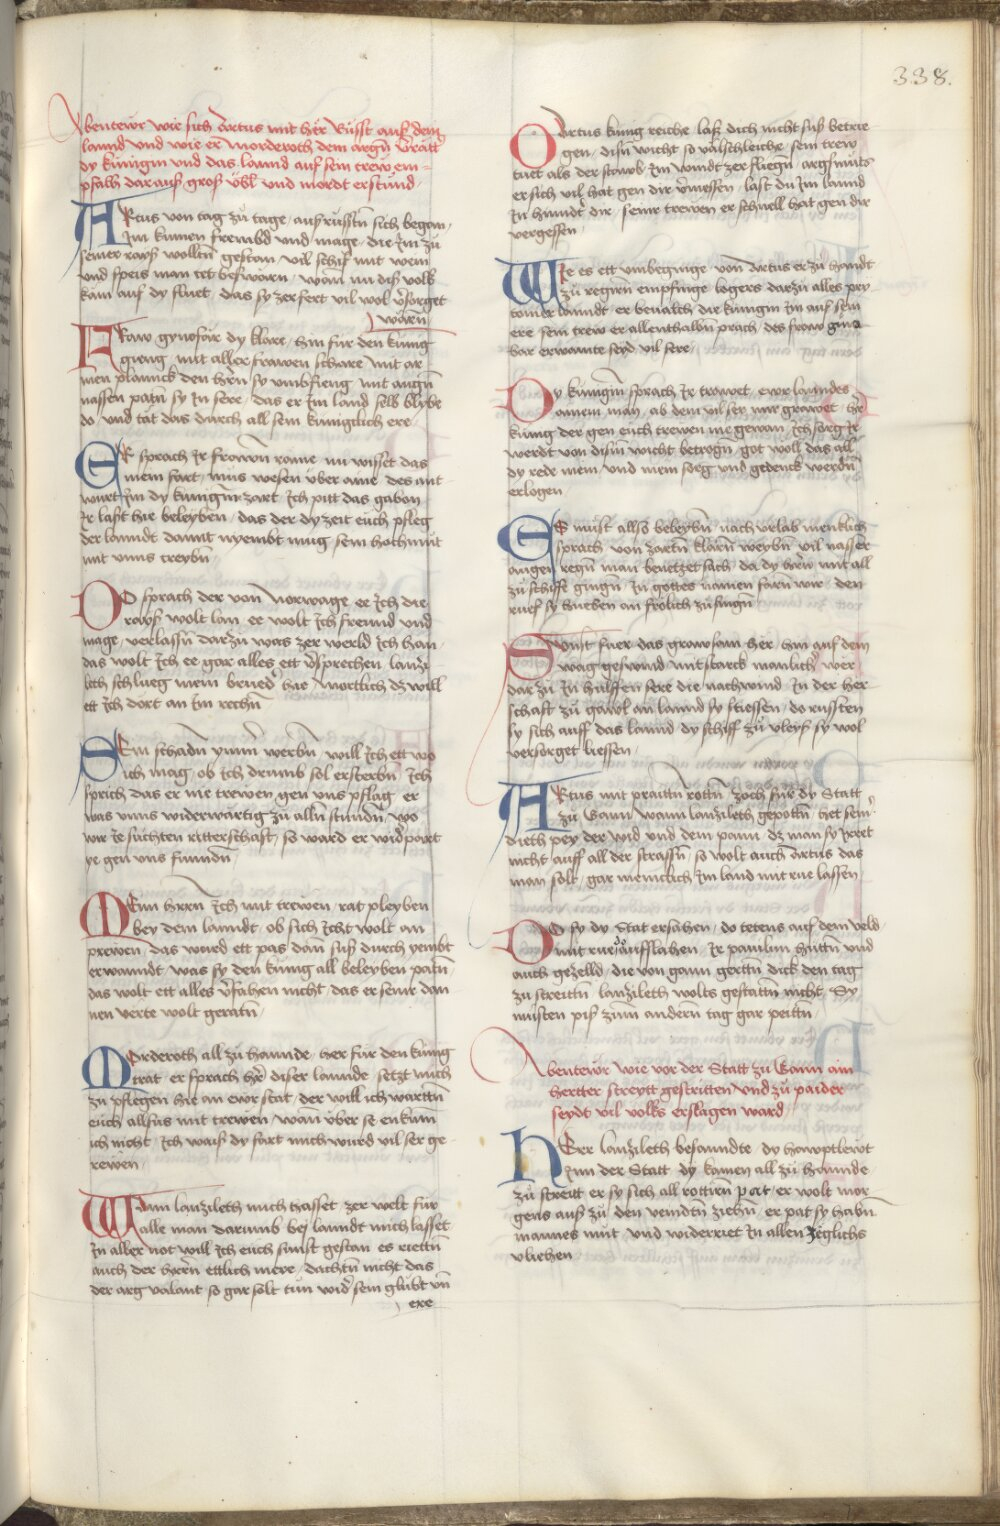 338.
Abentewr wie sich Artus mit her rüsst auß dem
lannd und wie er Morderoth dem argn verrätter
dy künigin und das lannd auf sein trew em-
pfalh dar auß groß übl und mordt erstund
ARtus von tag zů tage / auß rüsstn sich began /
Im kumen frembd und mage / die Im zu
seiner rayß wolltn gestan / vil schif mit wein
und speis man tet beswärn / wann nu diß volk
kam auf dy fluet / das sy zerfert vil wol versorget
wärn /
FRaw gynofar dy klare / hin für den künig
gieng / mit aller frawen schare mit ar
men planck den hern sy umbfieng mit augn
nassen patn sy In sere / das er Im land selb blybe
do / und tät das durch all sein küniglich ere /
ER sprach Ir frowen rame nu wisset das
mein fart / mus wesen über ame des ant
wurt Im dy künigin zart / Ich pitt das gabon
Ir last hie beleyben / das der dy zeit euch pfleg
der lanndt damit nyembt mug / sein hochmut
mit unns treybn /
DO sprach der von Norwage / ee Ich die
rayß wolt lan / ee wolt Ich freund und
mage / verlassn darzů was zer werld Ich han /
das wolt Ich ee gar alles ett versprechen / lanzi-
leth schlueg mein brueder hie mortlich dz will
ett Ich dort an Im rechn
SEin schadn ymmer werbn / will Ich ett wo
ich mag / ob ich drumb sol ersterbn / Ich
sprich das er nie trewen gen uns pflag / er
was unns widerwärtig zů alln stundn / wo
wir ye suchten ritterschafft / so ward er widerpart
ye gen uns fundn /
MEin herrn Ich mit trewen / rat pleyben
bey dem lanndt / ob sich Icht wolt an
prewen / das wurd ett pas dan süß durch yembt
erwanndt / was sy den künig all beleyben patn /
das wolt ett alles verfahen nicht / das er seiner dan
nen verte wolt geratn /
MOrderoth all zů hannde / her für den künig
trat / er sprach her diser lannde / setzt mich
zu pflegen hie an ewr stat / der will ich warttn
euch allsus mit trewen / wann über se enkum
ich nicht / Ich wais dy fart mich wurd vil ser ge-
rewen /
WAnn lanzileth mich hasset / zer welt für
alle man darumb bey lanndt mich lasset
In aller not will Ich euch sunst gestan es riettn
auch der herrn ettlich mere / dachtn nicht das
der arg valant / so gar solt tun wider sein glübt und
ere
O Artus künig reiche / laß dich nicht suß betrie
gen / disn wicht so välschleiche / sein trew
tuet als der stawb Im windt zerfliegn / args muts
er sich vil hat gen dir vermessen / last du Im lannd
In hinder dir / seiner trewen er schnell hat gen dir
vergessen /
WIe es ett umbeginge von Artus er zů handt
zů regirn empfinge logers darzů alles pry
tonier lanndt / er bevalch die künigin Im auf sein
ere / sein trew er allenthalbn prach / des frow gino
var erwainte seyd vil sere /
DY künigin sprach Ir trawet ewr lanndes
ainem man / ab dem vil ser mir grawet / her
künig der gen euch trewen nie gewan / Ich sorg Ir
werdt von disn wicht betrogn / got woll das all
dy rede mein / und mein sorg und gedenck werdn
erlogen
ES mußt allso beleybn / nach urlab menklich
sprach / von zartn klarn weybn / vil nasser
augen regn man benetzet sach / da dy hern mit all
zů schiffe gingn / In gottes namen farn wir / den
rueff sy hueben an frolich zů singn
SUnst fuer das growsam her / hin auf dem
wag geswind mit starck manlicher wer
darzů In hülffen sere die nachwind / In der her
schaft zů gawl an lannd sy stiessen / do russten
sy sich auff das lannd dy schiff zů vleyß sy wol
versorget liessen /
ARtus mit praittn rottn / zoch für dy Statt
zů Gann / wann lanzileth gepottn / het seiner
dieth pey der wid und dem pann / dz man sy yrret
nicht auff all der strassn / so wolt auch Artus das
man solt / gar menclich Im land mit rue lassen
DO sy dy Stat ersahen / do tetens auf dem veld /
mit rue do aufflahen / Ir paulun hüttn und
auch gezelld / die von gann gertten dick den tag
zu streittn / lanzileth wolts gestattn nicht / Sy
müsten piß zům andern tag gar peittn /
Abentewr wie vor der Statt zů Gann ain
hertter streytt gestritten und zů paider
seydt vil volks erslagen ward
HErr lanzileth besanndte / dy hawptlewt
Inn der Statt / dy kamen all zů hannde
zů streitt er sy sich all rottirn pat / er wolt mor
gens auß zů den veindtn ziehn / er pat sy habn
mannes mut / und widerriet In allen Zeglichs
vliehen